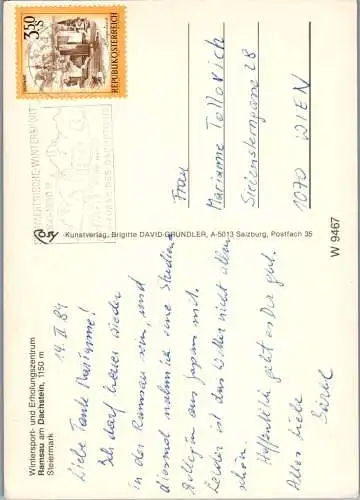 Wintersport- und Erholungszentrum
Ramsau am Dachstein, 1150 m
Steiermark
14. II 84
Liebe Tante Marianne!
Ich darf heuer wieder
in der Ramsau sein, und
diesmal nahm ich eine Studien-
kollegin aus Japan mit.
Leider ist das Wetter nicht allzu
schön.
Hoffentlich geht es Dir gut.
Alles Liebe
-Kunstverlag, Brigitte DAVID-GRÜNDLER, A-5013 Salzburg, Postfach 35
W 9467
3.50
S
REPUBLIK ÖSTERREICH
Frau
Marianne
Siebensterngasse 28
1070 WIEN